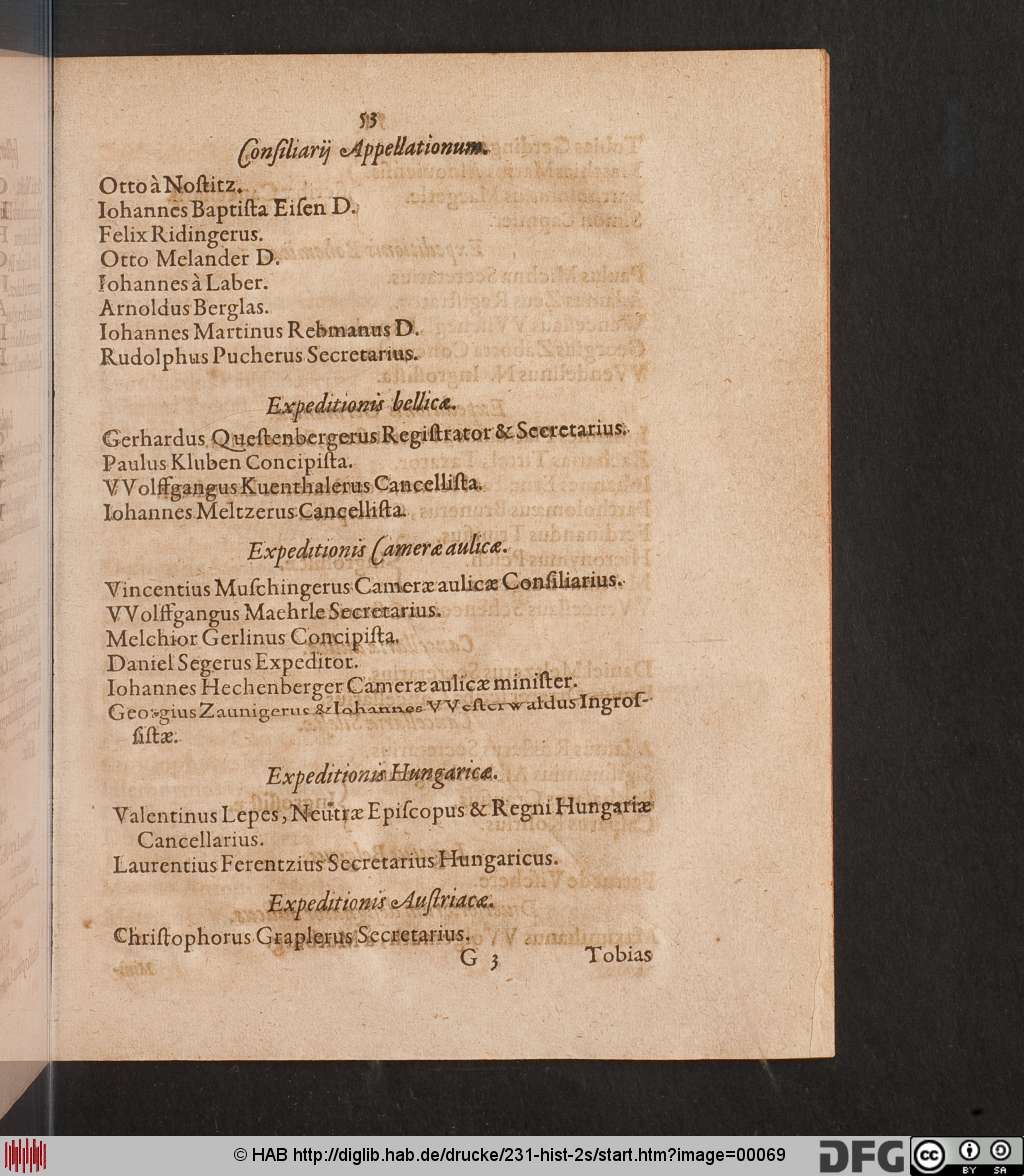 53
Conſiliarij Appellationum.
Otto à Noſtitz.
Iohannes Baptiſta Eiſen D.
Felix Ridingerus.
Otto Melander D.
Iohannes à Laber.
Arnoldus Berglas.
Iohannes Martinus Rebmanus D.
Rudolphus Pucherus Secretarius.
Expeditionis bellicæ.
Gerhardus Queſtenbergerus Regiſtrator & Secretarius.
Paulus Kluben Concipiſta.
VVolffgangus Kuenthalerus Cancelliſta.
Iohannes Meltzerus Cancelliſta.
Expeditionis Cameræ aulicæ.
Vincentius Muſchingerus Cameræ aulicæ Conſiliarius.
VVolffgangus Maehrle Secretarius.
Melchior Gerlinus Concipiſta.
Daniel Segerus Expeditor.
Iohannes Hechenberger Cameræ aulicæ miniſter.
Georgius Zaunigerus & Iohannes VVeſterwaldus Ingroſ-
ſiſtæ.
Expeditionis Hungaricæ.
Valentinus Lepes, Neütræ Epiſcopus & Regni Hungariæ
Cancellarius.
Laurentius Ferentzius Secretarius Hungaricus.
Expeditionis Auſtriacæ.
Chriſtophorus Graplerus Secretarius.
G 3 Tobias
© HAB http://diglib.hab.de/drucke/231-hist-2s/start.htm?image=00069
DFG
cc BY SA